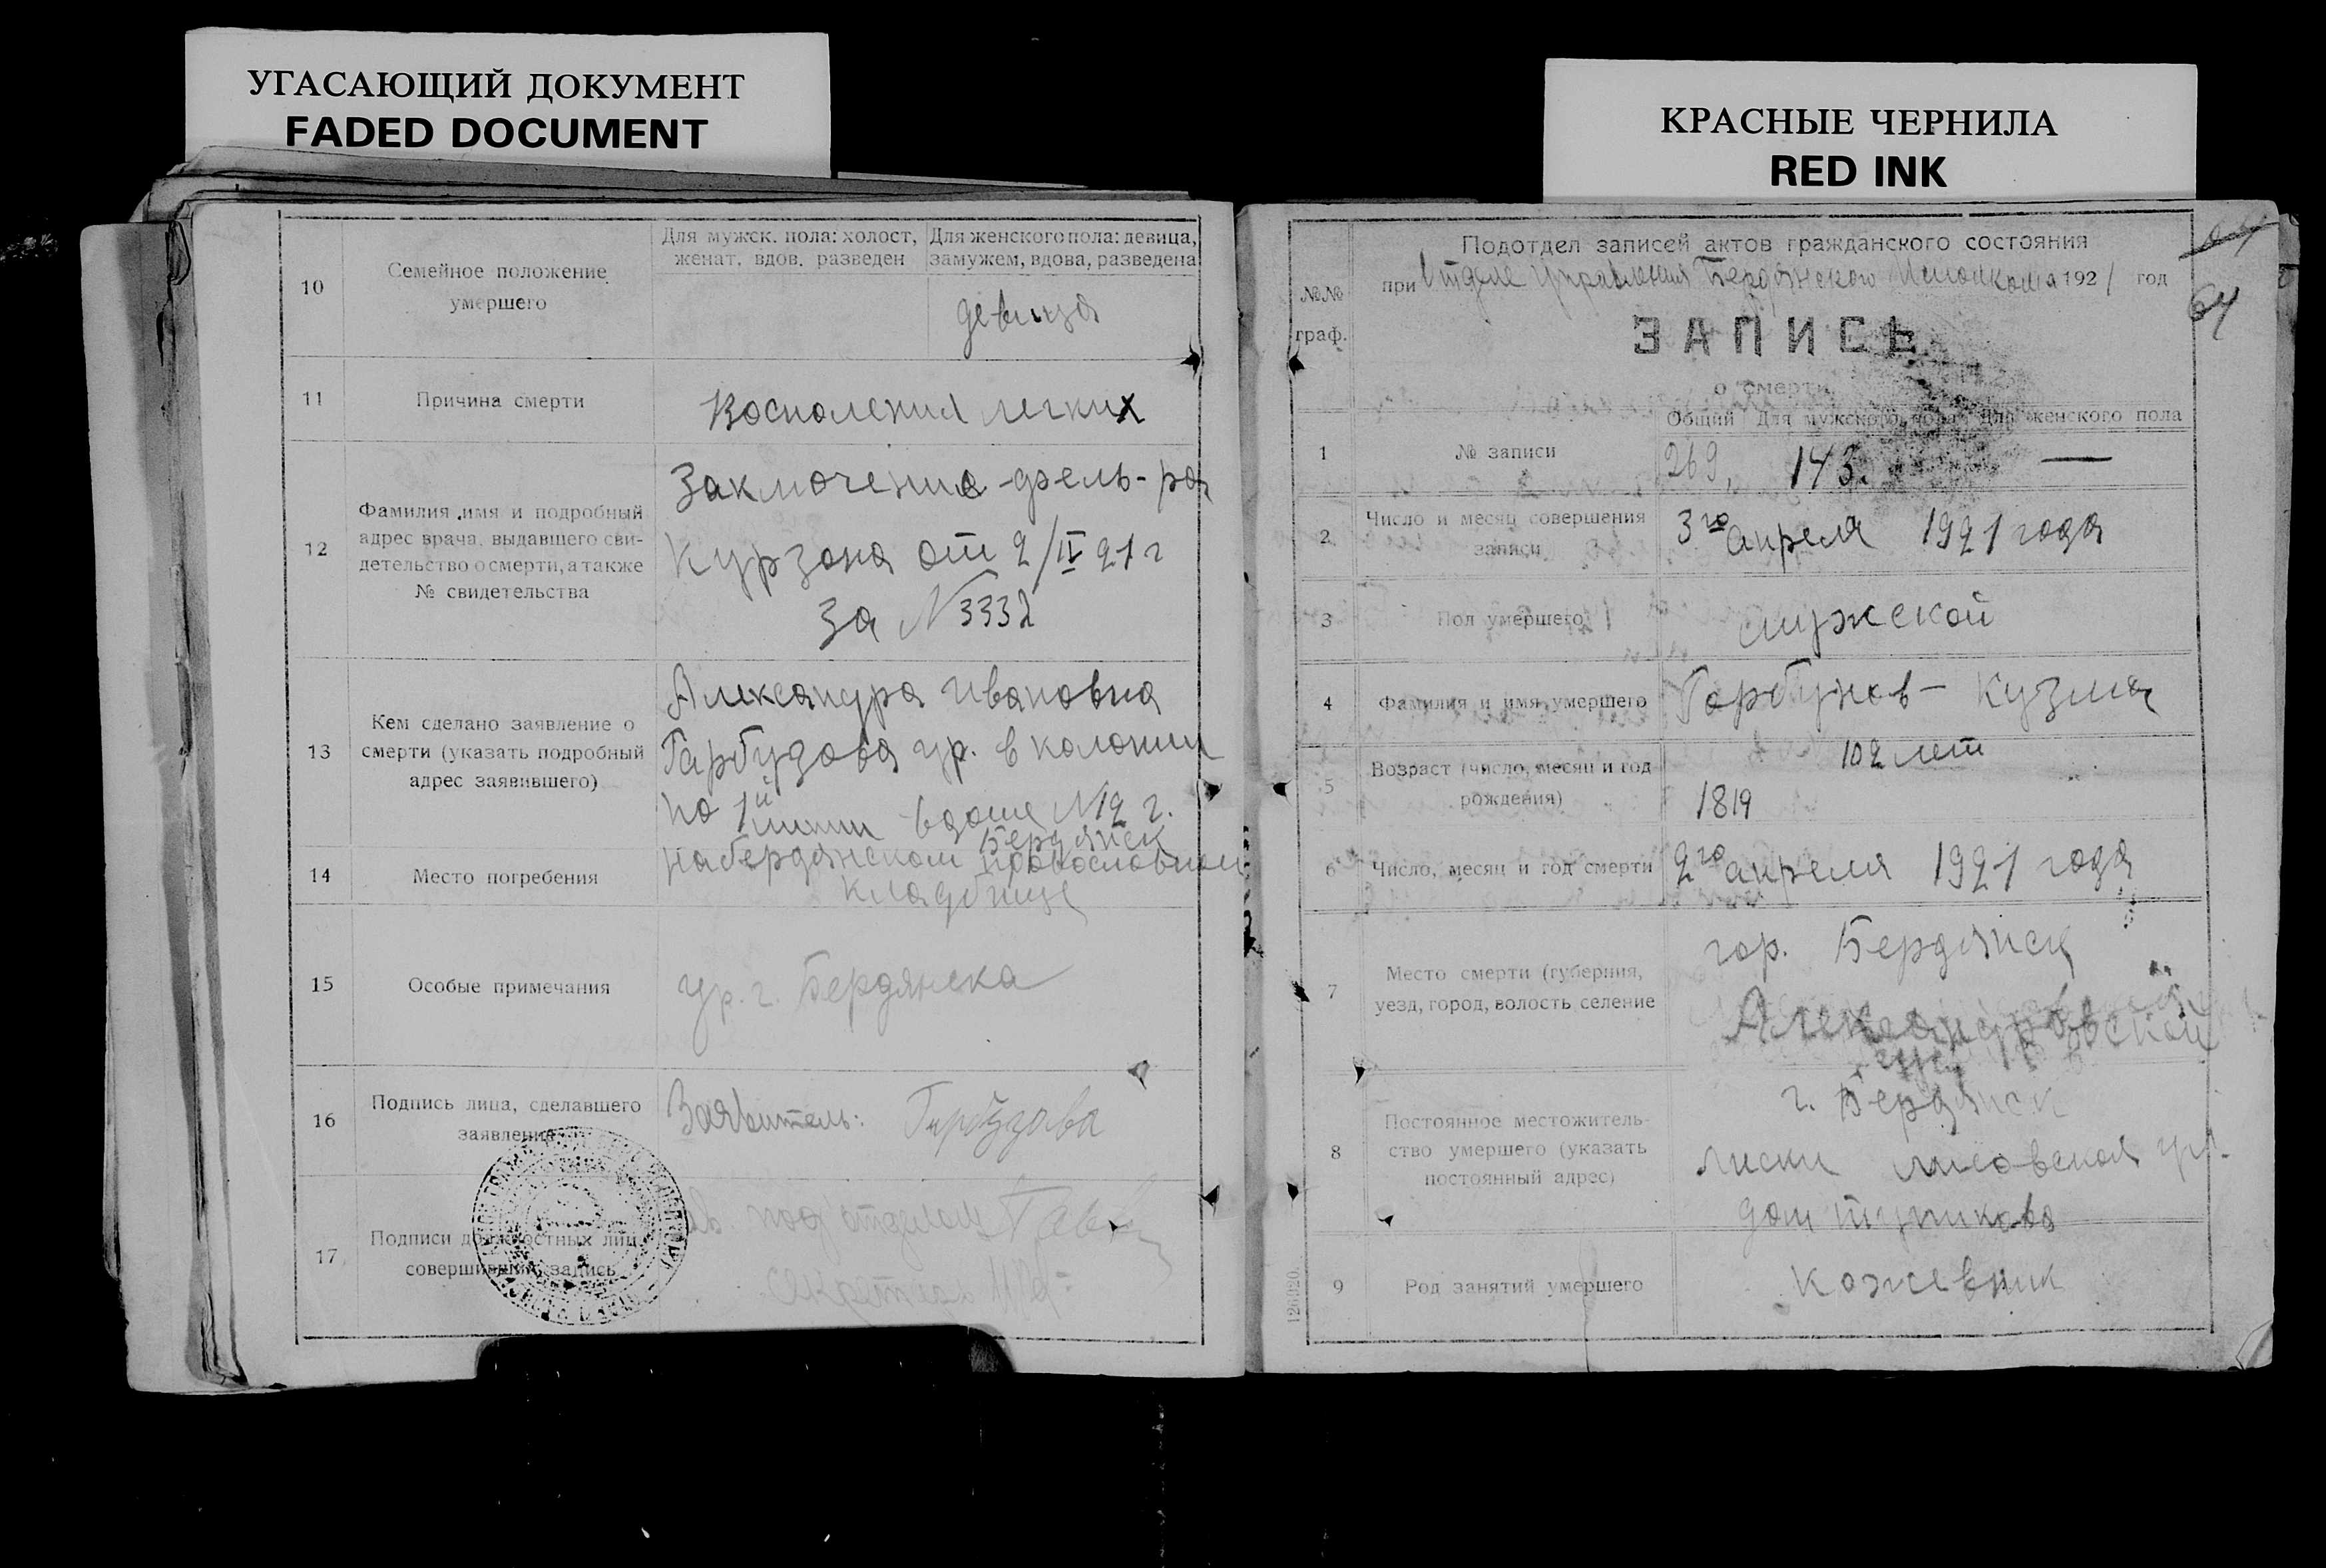 УГАСАЮЩИЙ ДОКУМЕНТ
FADED DOCUMENT
10
Семейное положение
умершего
Для мужск. пола: холост,
женат, вдов, разведен
Для женского пола: девица,
замужем, вдова, разведена
девица
11
Причина смерти
Воспаления легких
12
Фамилия, имя и подробный
адрес врача, выдавшего сви-
детельство о смерти, а также
№ свидетельства
Заключение фель-ра
Курзона от 2/IV 21 г
За N 3332
13
Кем сделано заявление о
смерти (указать подробный
адрес заявившего)
Александра Ивановна
Гарбузова гр. в колонии
по 1й линии в доме N 12 г.
Бердянск
14
Место погребения
на бердянском православном
кладбище
15
Особые примечания
гр. г. Бердянска
16
Подпись лица, сделавшего
заявление
Заявитель: Гарбузова
17
Подписи должностных лиц,
совершивших запись
подотделом
КРАСНЫЕ ЧЕРНИЛА
RED INK
64
64
№№
граф.
Подотдел записей актов гражданского состояния
при Отделе Управления Бердянского Исполкома 1921 год
ЗАПИСЬ
о смерти
Общий Для мужского пола Для женского пола
1
№ записи
269, 143. —
2
Число и месяц совершения
записи
3го апреля 1921 года
3
Пол умершего
мужской
4
Фамилия и имя умершего
Горбунов - Кузма
5
Возраст (число, месяц и год
рождения)
102 лет
1819
6
Число, месяц и год смерти
2го апреля 1921 года
7
Место смерти (губерния,
уезд, город, волость селение
гор. Бердянск
Александровской
губ
8
Постоянное местожитель-
ство умершего (указать
постоянный адрес)
г. Бердянск
Лиски ул.
дом
9
Род занятий умершего
Кожевник
126020.